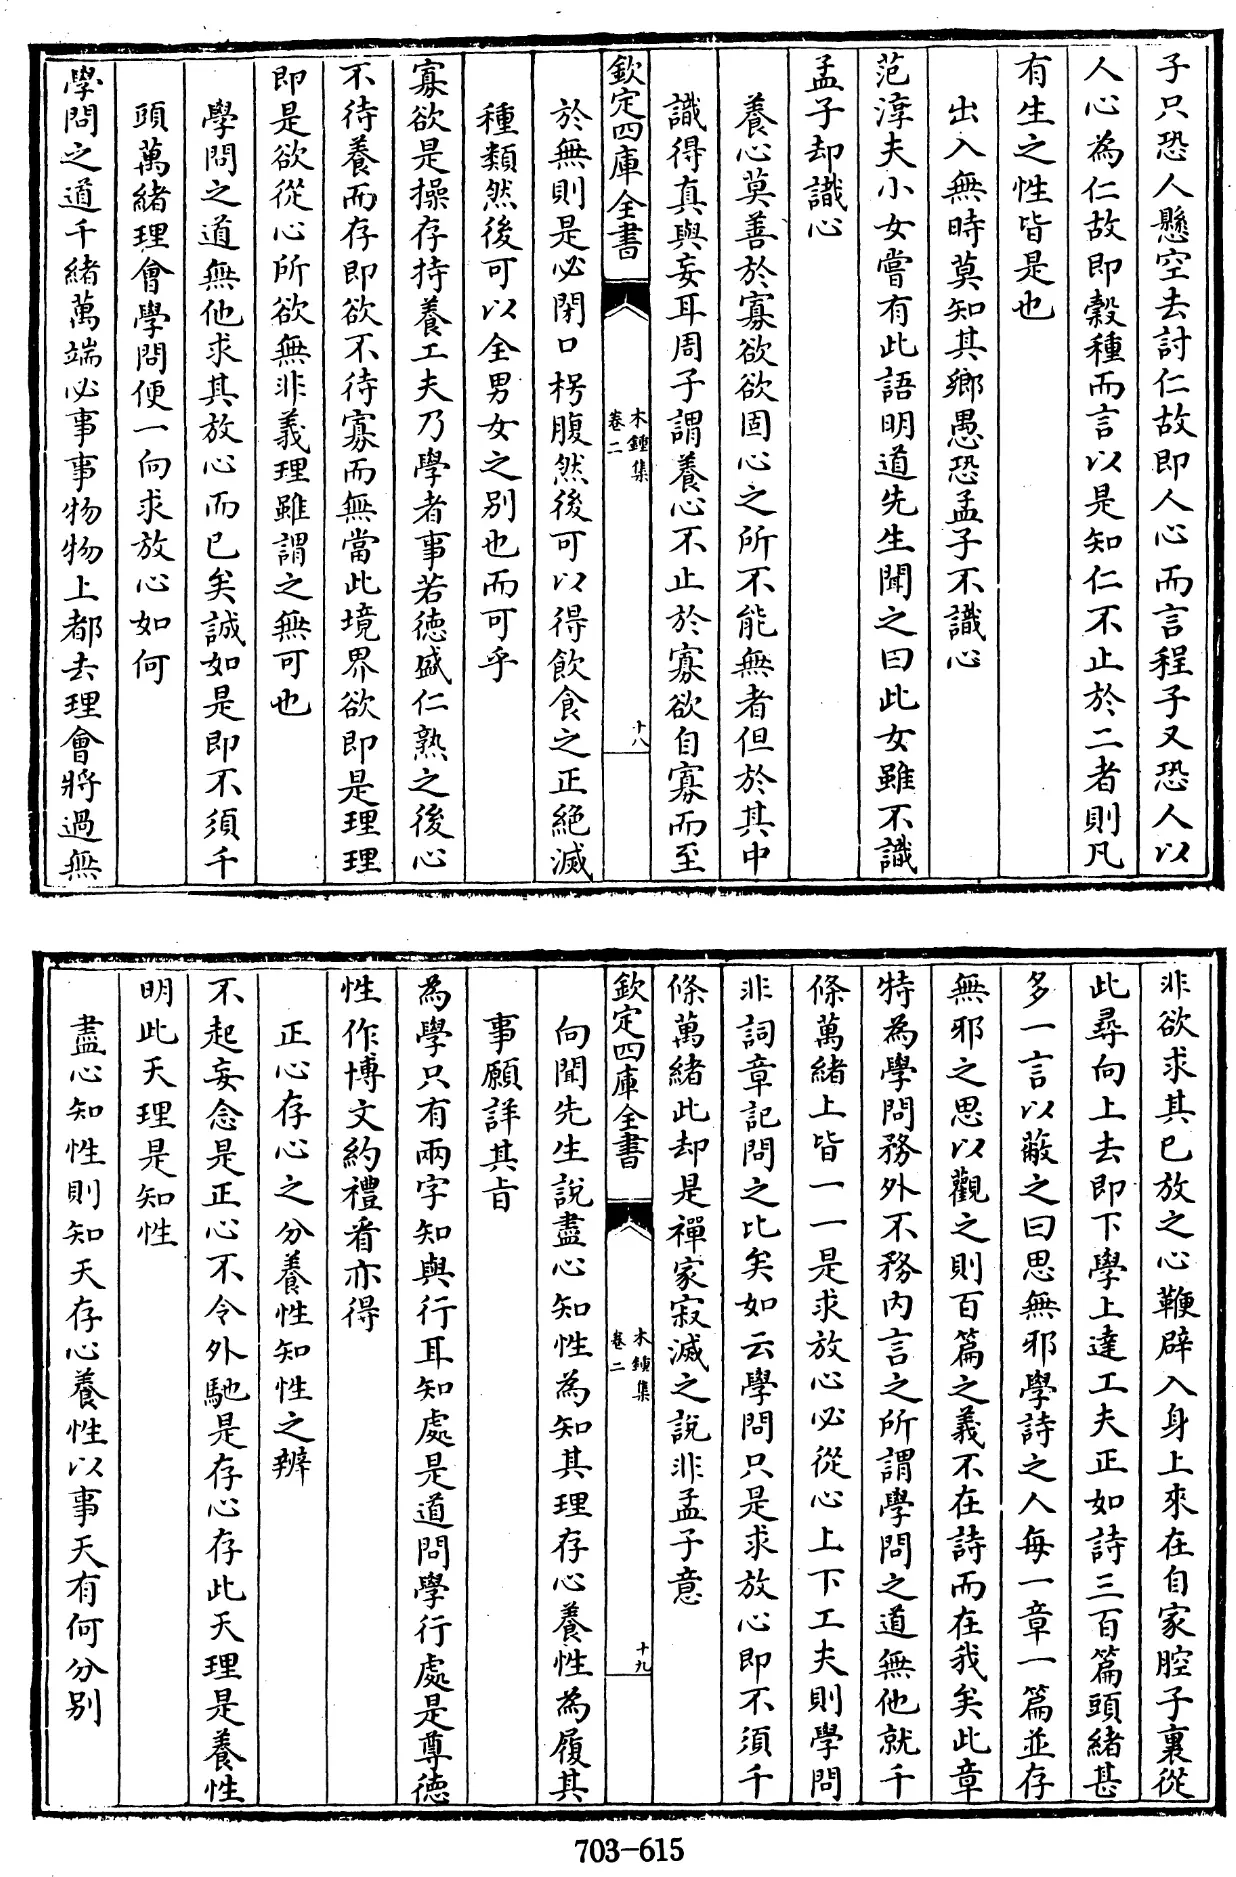 子只恐人懸空去討仁故即人心而言程子又恐人以
人心為仁故即穀種而言以是知仁不止於二者則凡
有生之性皆是也
出入無時莫知其鄉愚恐孟子不識心
范淳夫小女嘗有此語明道先生聞之曰此女雖不識
孟子却識心
養心莫善於寡欲欲固心之所不能無者但於其中
識得真與妄耳周子謂養心不止於寡欲自寡而至
欽定四庫全書
木鍾集
卷二
十八
於無則是必閉口枵腹然後可以得飲食之正絕滅
種類然後可以全男女之别也而可乎
寡欲是操存持養工夫乃學者事若德盛仁熟之後心
不待養而存即欲不待寡而無當此境界欲即是理理
即是欲從心所欲無非義理雖謂之無可也
學問之道無他求其放心而已矣誠如是即不須千
頭萬緒理會學問便一向求放心如何
學問之道千緒萬端必事事物物上都去理會將過無
非欲求其已放之心鞭辟入身上來在自家腔子裏從
此尋向上去即下學上達工夫正如詩三百篇頭緒甚
多一言以蔽之曰思無邪學詩之人每一章一篇並存
無邪之思以觀之則百篇之義不在詩而在我矣此章
特為學問務外不務内言之所謂學問之道無他就千
條萬緒上皆一一是求放心必從心上下工夫則學問
非詞章記問之比矣如云學問只是求放心即不須千
條萬緒此却是禪家寂滅之說非孟子意
欽定四庫全書
木鍾集
卷二
十九
向聞先生說盡心知性為知其理存心養性為履其
事願詳其旨
為學只有兩字知與行耳知處是道問學行處是尊德
性作博文約禮看亦得
正心存心之分養性知性之辨
不起妄念是正心不令外馳是存心存此天理是養性
明此天理是知性
盡心知性則知天存心養性以事天有何分别
703-615